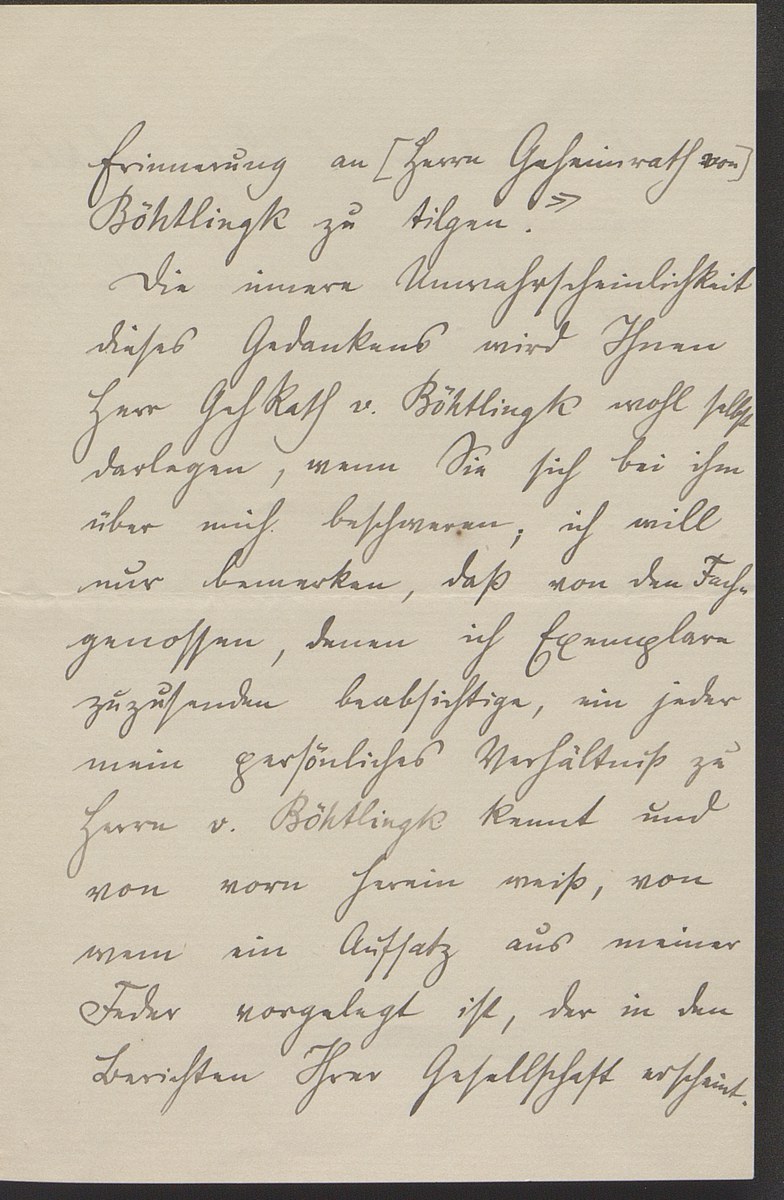 Erinnerung an [Herrn Geheimrath von]
Böhtlingk zu tilgen.»
Die innere Unwahrscheinlichkeit
dieses Gedankens wird Ihnen
Herr GehRath v. Böhtlingk wohl selbst
darlegen, wenn Sie sich bei ihm
über mich beschweren; ich will
nur bemerken, daß von den Fach-
genossen, denen ich Exemplare
zuzusenden beabsichtige, ein jeder
mein persönliches Verhältniß zu
Herrn v. Böhtlingk kennt und
von vorn herein weiß, von
wem ein Aufsatz aus meiner
Feder vorgelegt ist, der in den
Berichten Ihrer Gesellschaft erscheint.